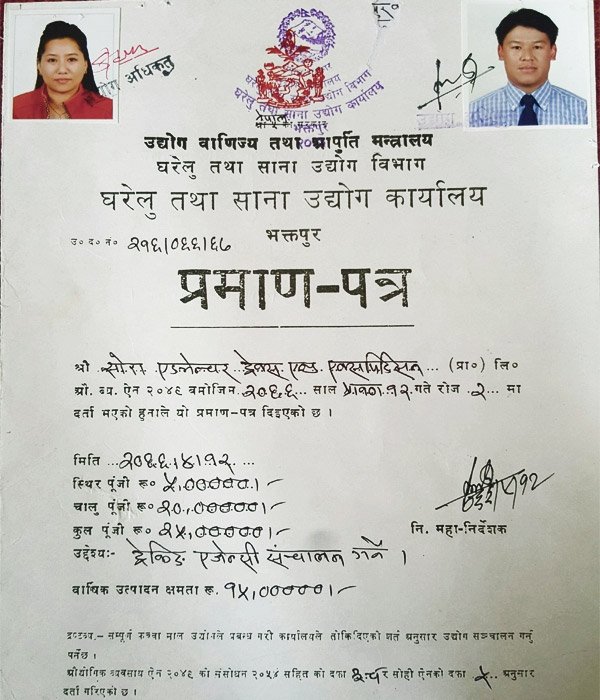 उद्योग अधिकृत
घरेलु तथा साना उद्योग विभाग
घरेलु तथा साना उद्योग कार्यालय
भक्तपुर
उद्योग वाणिज्य तथा आपूर्ति मन्त्रालय
घरेलु तथा साना उद्योग विभाग
घरेलु तथा साना उद्योग कार्यालय
भक्तपुर
उ० द० नं० २१६/०६६/६७
प्रमाण-पत्र
श्री एडभेन्चर ट्रेक्स एण्ड एक्सपिडिसन (प्रा०) लि०
औ. ब्य. ऐन २०४९ बमोजिम २०६६ साल श्रावण १२ गते रोज २ मा
दर्ता भएको हुनाले यो प्रमाण-पत्र दिइएको छ ।
मिति ...२०६६।४।१२...
स्थिर पूंजी रू० ५,०००००।-
चालु पूंजी रू० २०,०००००।-
कुल पूंजी रू० २५,०००००।-
नि. महा-निर्देशक
उद्देश्य:- ट्रेकिङ एजेन्सी संचालन गर्ने ।
वार्षिक उत्पादन क्षमता रू. १५,०००००।-
द्रष्टव्य.- सम्पूर्ण कच्चा माल उद्योगले प्रबन्ध गरी कार्यालयले तोकिदिएको शर्त अनुसार उद्योग सञ्चालन गर्नु
पर्नेछ ।
औद्योगिक ब्यवसाय ऐन २०४९ को संसोधन २०५४ सहित को दफा र सोही ऐनको दफा अनुसार
दर्ता गरिएको छ ।